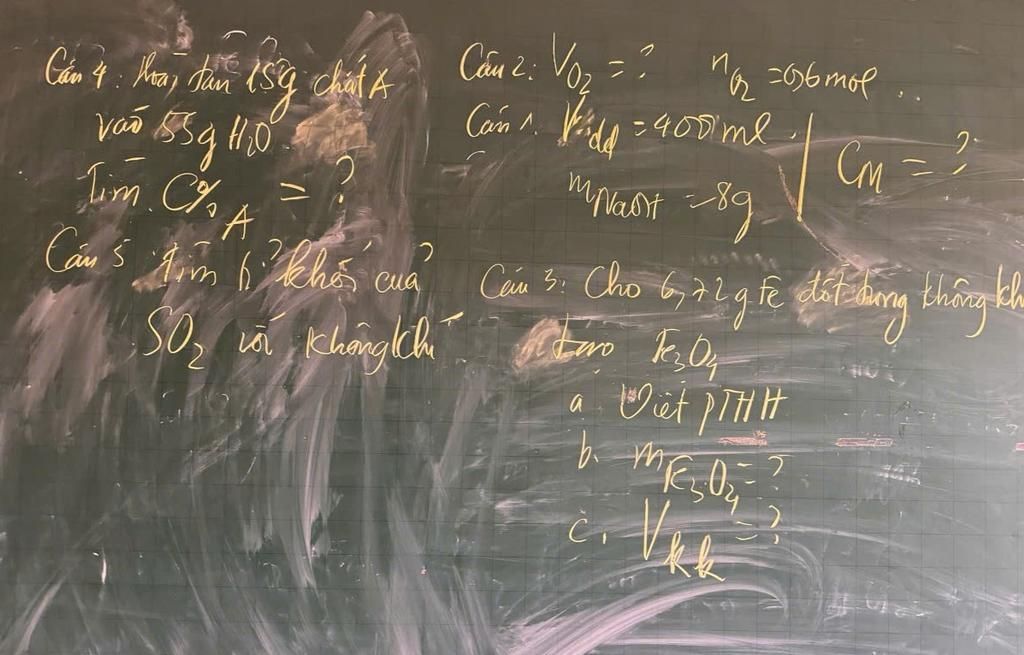 Câu 4: Hoà tan 15g chất A
vào 55g H₂O.
Tìm C%A = ?
Câu 5 Tìm tỉ khối của
SO₂ với không khí
Câu 2: VO₂ = ? nO₂ = 0,6 mol
Câu 1. Vdd = 400 ml | CM = ?
mNaOH = 8g
Câu 3: Cho 6,72g Fe đốt trong không kh
tạo Fe₃O₄
a Viết PTHH
b. mFe₃O₄ = ?
c. Vkk = ?